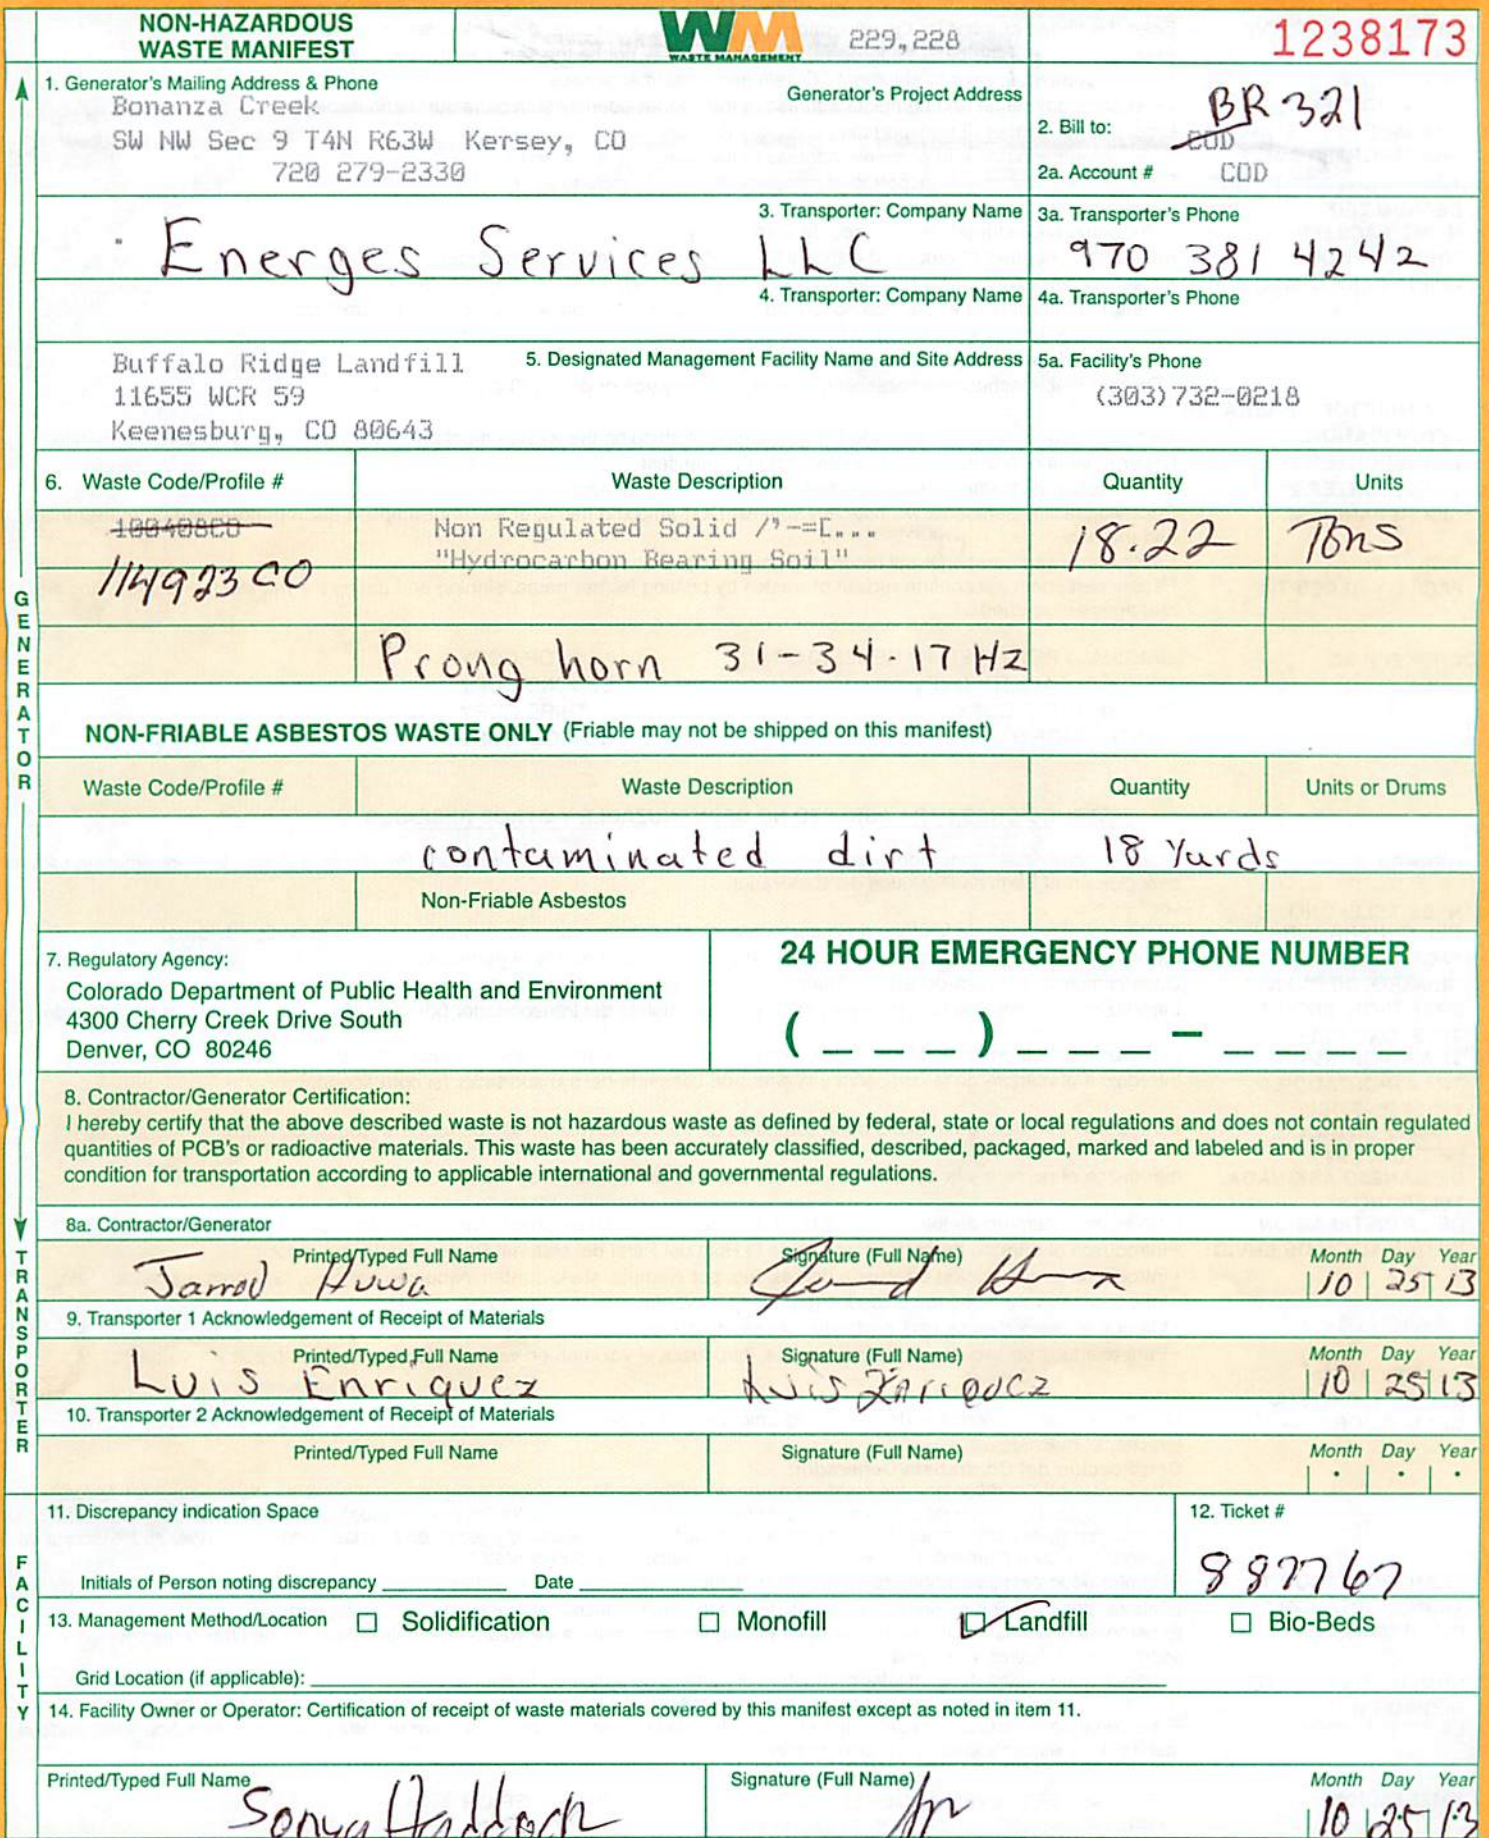 NON-HAZARDOUS
WASTE MANIFEST
WM
WASTE MANAGEMENT
229,228
1238173
1. Generator's Mailing Address & Phone
Generator's Project Address
Bonanza Creek
SW NW Sec 9 T4N R63W Kersey, CO
720 279-2330
2. Bill to:
BR 321
COD
2a. Account #
COD
3. Transporter: Company Name
Energes Services LLC
3a. Transporter's Phone
970 381 4242
4. Transporter: Company Name
4a. Transporter's Phone
Buffalo Ridge Landfill
11655 WCR 59
Keenesburg, CO 80643
5. Designated Management Facility Name and Site Address
5a. Facility's Phone
(303)732-0218
6. Waste Code/Profile # Waste Description Quantity Units
100408CO
114923 CO
Non Regulated Solid /'-=[...
"Hydrocarbon Bearing Soil"
18.22 Tons
Prong horn 31-34-17 HZ
NON-FRIABLE ASBESTOS WASTE ONLY (Friable may not be shipped on this manifest)
Waste Code/Profile # Waste Description Quantity Units or Drums
contaminated dirt 18 Yards
Non-Friable Asbestos
7. Regulatory Agency:
Colorado Department of Public Health and Environment
4300 Cherry Creek Drive South
Denver, CO 80246
24 HOUR EMERGENCY PHONE NUMBER
( _ _ _ ) _ _ _ - _ _ _ _
8. Contractor/Generator Certification:
I hereby certify that the above described waste is not hazardous waste as defined by federal, state or local regulations and does not contain regulated
quantities of PCB's or radioactive materials. This waste has been accurately classified, described, packaged, marked and labeled and is in proper
condition for transportation according to applicable international and governmental regulations.
8a. Contractor/Generator
Printed/Typed Full Name Signature (Full Name) Month Day Year
Jarrod Huwa 10 25 13
9. Transporter 1 Acknowledgement of Receipt of Materials
Printed/Typed Full Name Signature (Full Name) Month Day Year
Luis Enriquez Luis Enriquez 10 25 13
10. Transporter 2 Acknowledgement of Receipt of Materials
Printed/Typed Full Name Signature (Full Name) Month Day Year
11. Discrepancy indication Space
12. Ticket #
887767
Initials of Person noting discrepancy Date
13. Management Method/Location Solidification Monofill Landfill Bio-Beds
Grid Location (if applicable):
14. Facility Owner or Operator: Certification of receipt of waste materials covered by this manifest except as noted in item 11.
Printed/Typed Full Name Signature (Full Name) Month Day Year
Sonya Haddock 10 25 13
GENERATOR
TRANSPORTER
FACILITY